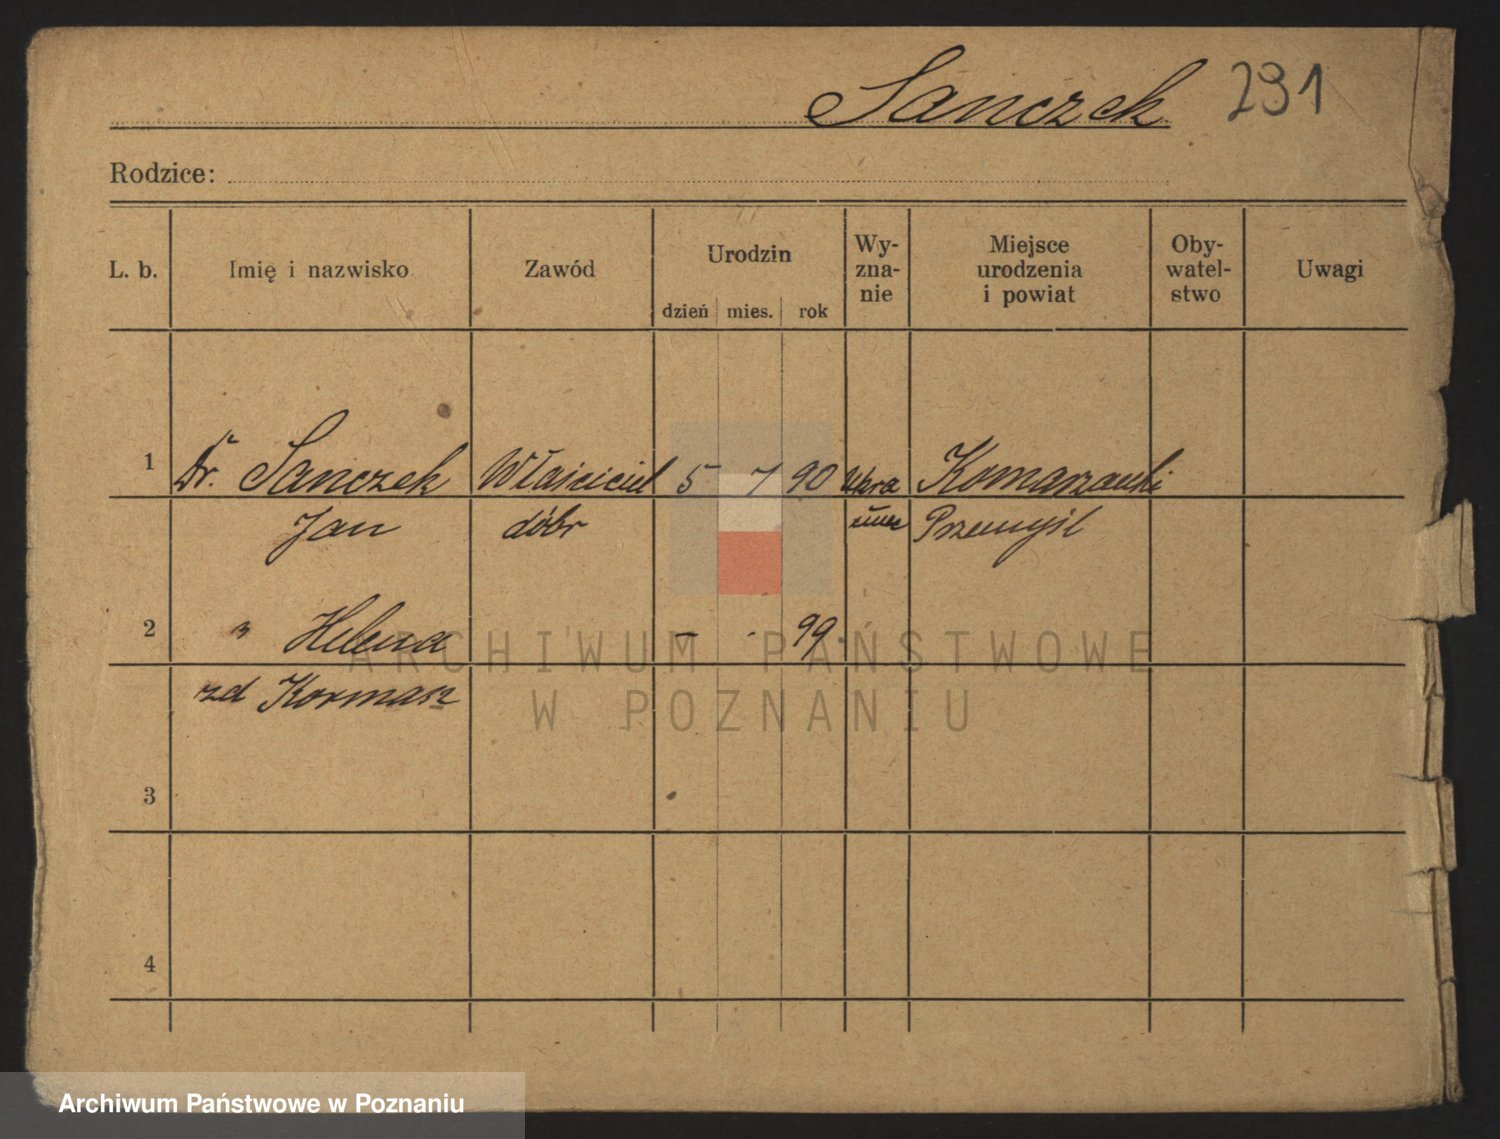 Sanczek 291
Rodzice:
L. b. Imię i nazwisko Zawód Urodzin dzień mies. rok Wy-zna-nie Miejsce urodzenia i powiat Oby-watel-stwo Uwagi
1 Dr. Sanczek Właściciel 5 7 90 Ukra Komarzański
Jan dóbr Przemyśl
2 " Helena - - 99
zd Kormasz
3
4
ARCHIWUM PAŃSTWOWE
W POZNANIU
Archiwum Państwowe w Poznaniu